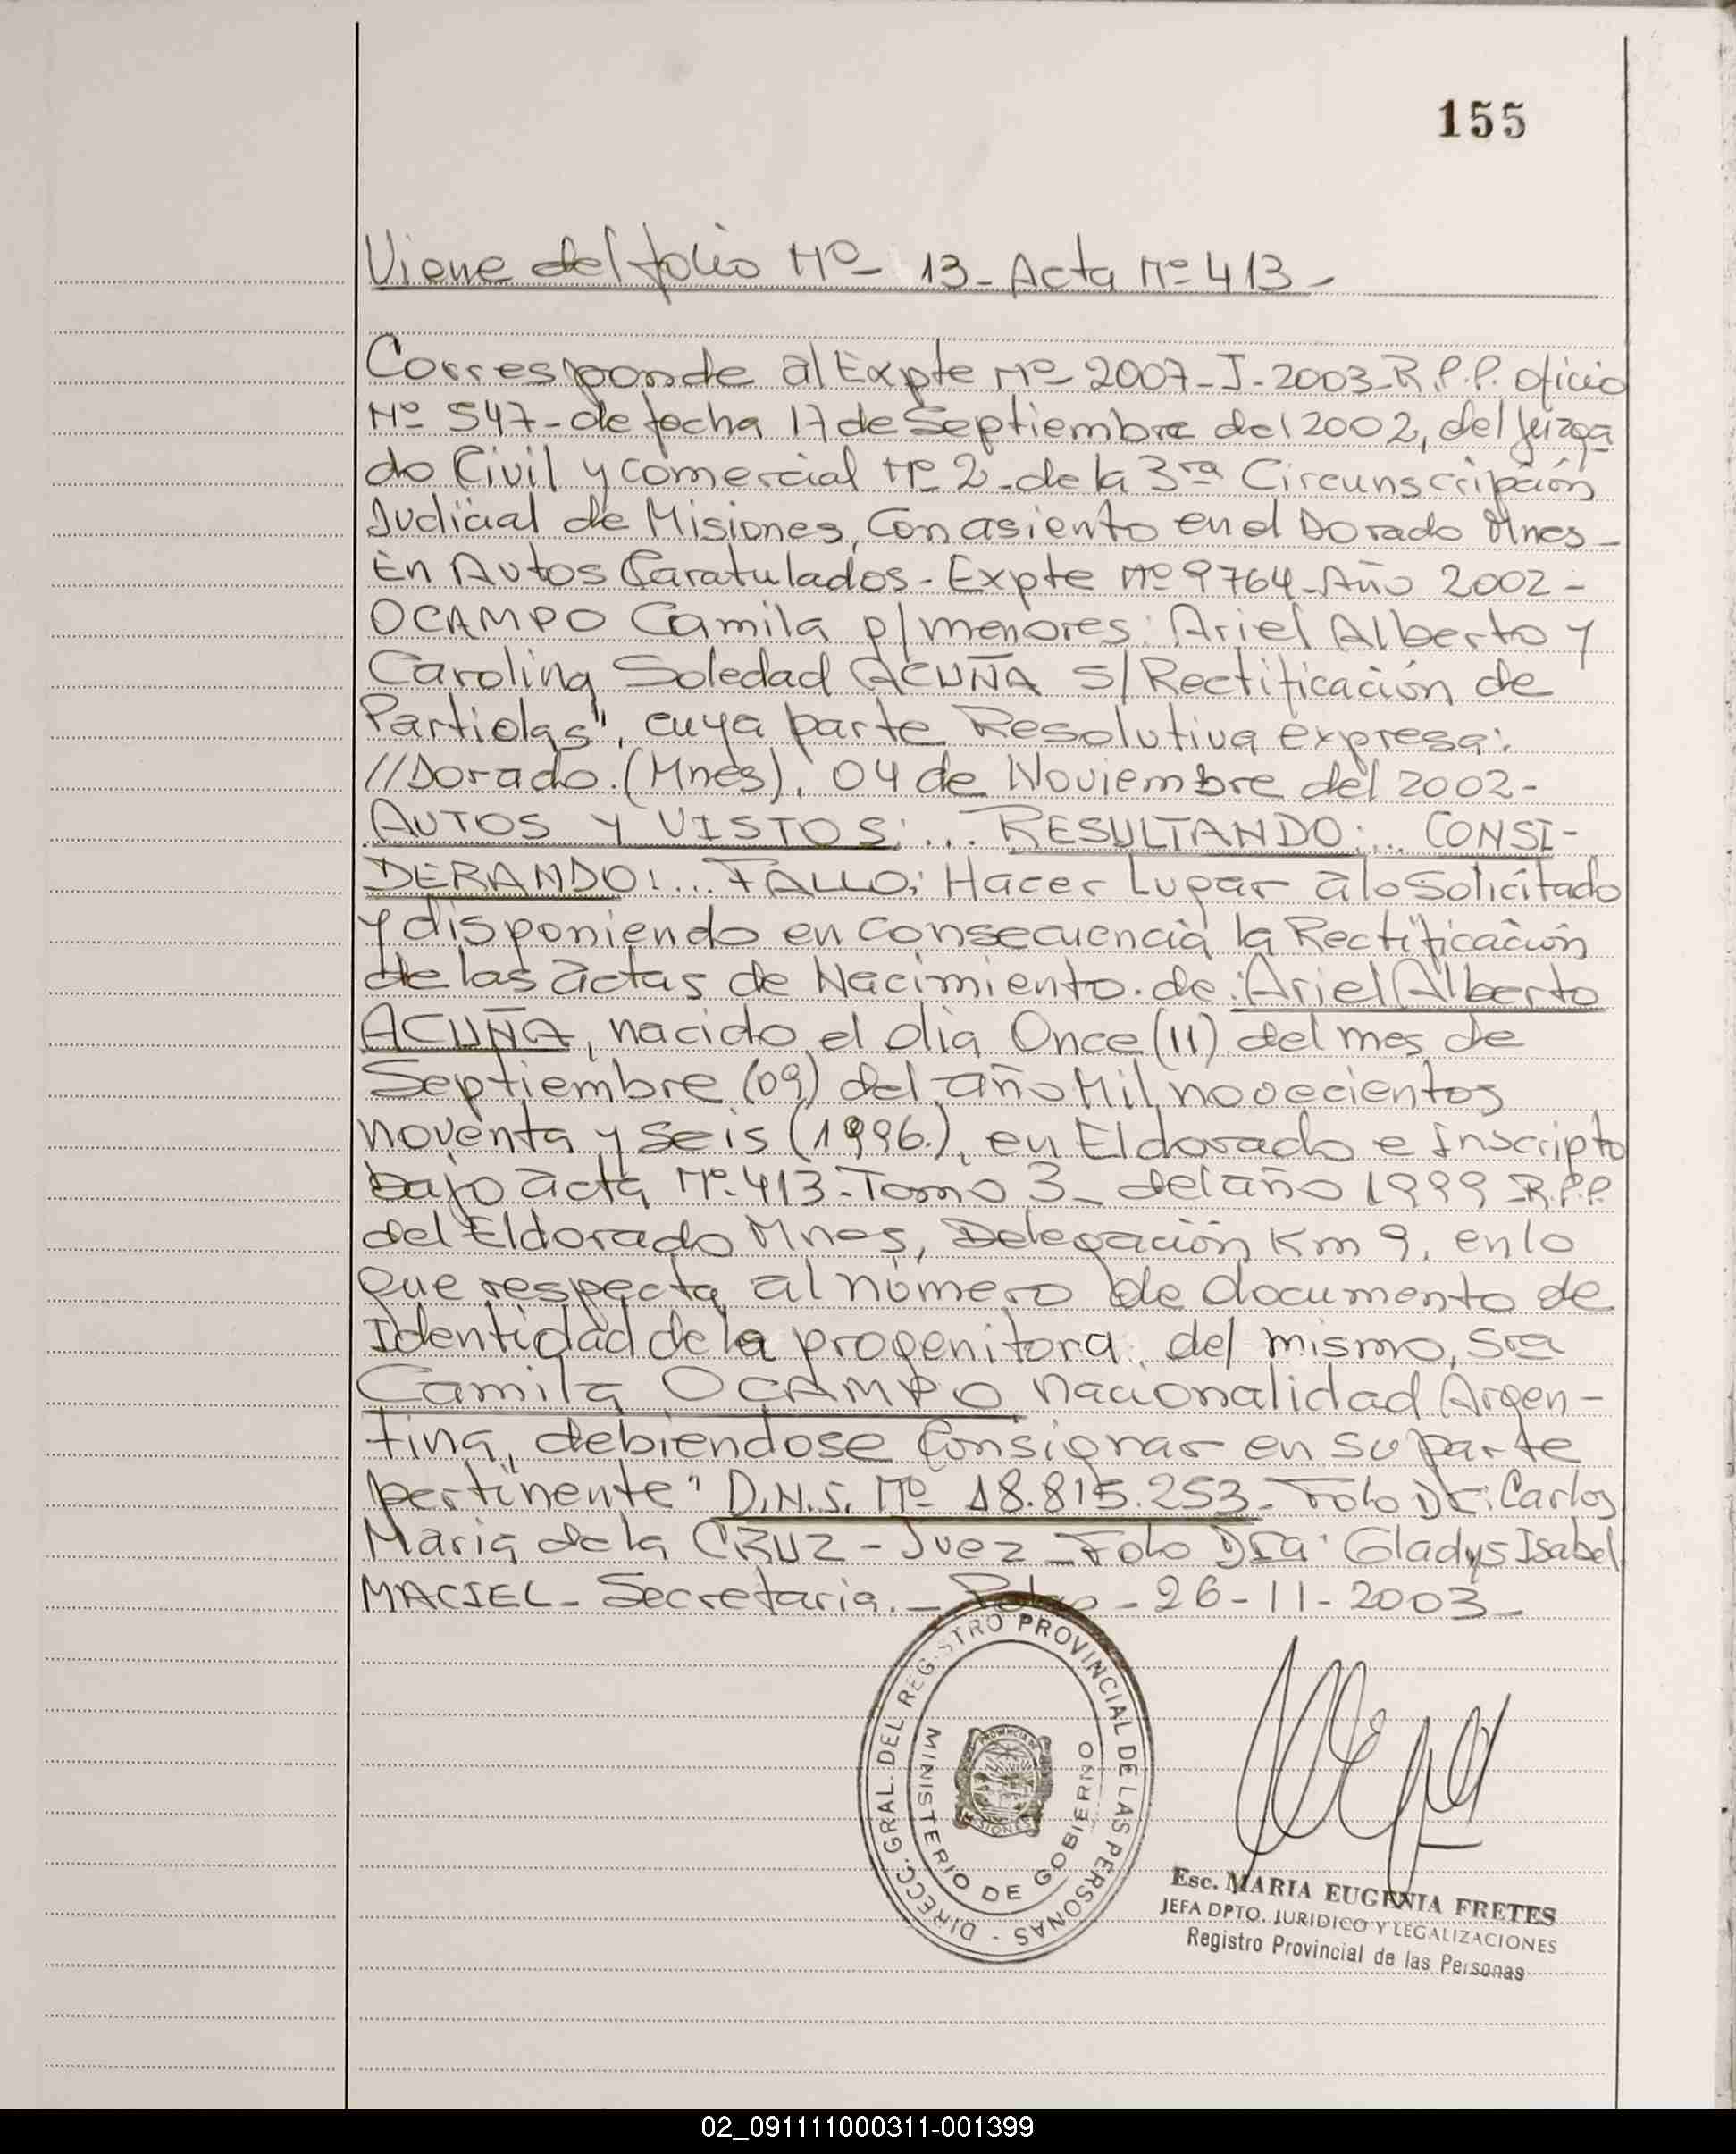 155
Viene del folio Nº 13 - Acta Nº 413 -
Corresponde al Expte Nº 2007 - J - 2003 - R.P.P. oficio
Nº 547 - de fecha 17 de Septiembre del 2002, del Juzga
do Civil y comercial Nº 2 - de la 3ra Circunscripción
Judicial de Misiones, Con asiento en el Dorado Mnes -
En Autos Caratulados - Expte Nº 9764 - Año 2002 -
OCAMPO Camila p/menores: Ariel Alberto y
Carolina Soledad ACUÑA S/Rectificación de
Partidas", cuya parte Resolutiva expresa:
//Dorado. (Mnes), 04 de Noviembre del 2002 -
AUTOS Y VISTOS: ... RESULTANDO: ... CONSI-
DERANDO: ... FALLO: Hacer Lugar a lo Solicitado
y disponiendo en consecuencia la Rectificación
de las actas de Nacimiento de: Ariel Alberto
ACUÑA, nacido el dia Once (11) del mes de
Septiembre (09) del año Mil novecientos
noventa y seis (1996.), en Eldorado e Inscripto
bajo acta Nº 413 - Tomo 3 - del año 1999 - R.P.P.
del Eldorado Mnes, Delegación Km 9, en lo
que respecta al número de documento de
Identidad de la progenitora del mismo, Sra
Camila OCAMPO nacionalidad Argen-
tina, debiendose Consignar en su parte
pertinente "D.N.I. Nº 18.815.253 - Fdo Dr. Carlos
Maria de la CRUZ - Juez - Fdo Dra. Gladys Isabel
MACIEL - Secretaria. - - 26 - 11 - 2003 -
DIRECC. GRAL. DEL REGISTRO PROVINCIAL DE LAS PERSONAS -
MINISTERIO DE GOBIERNO
PROVINCIA DE
MISIONES
Esc. MARIA EUGENIA FRETES
JEFA DPTO. JURIDICO Y LEGALIZACIONES
Registro Provincial de las Personas
02_091111000311-001399